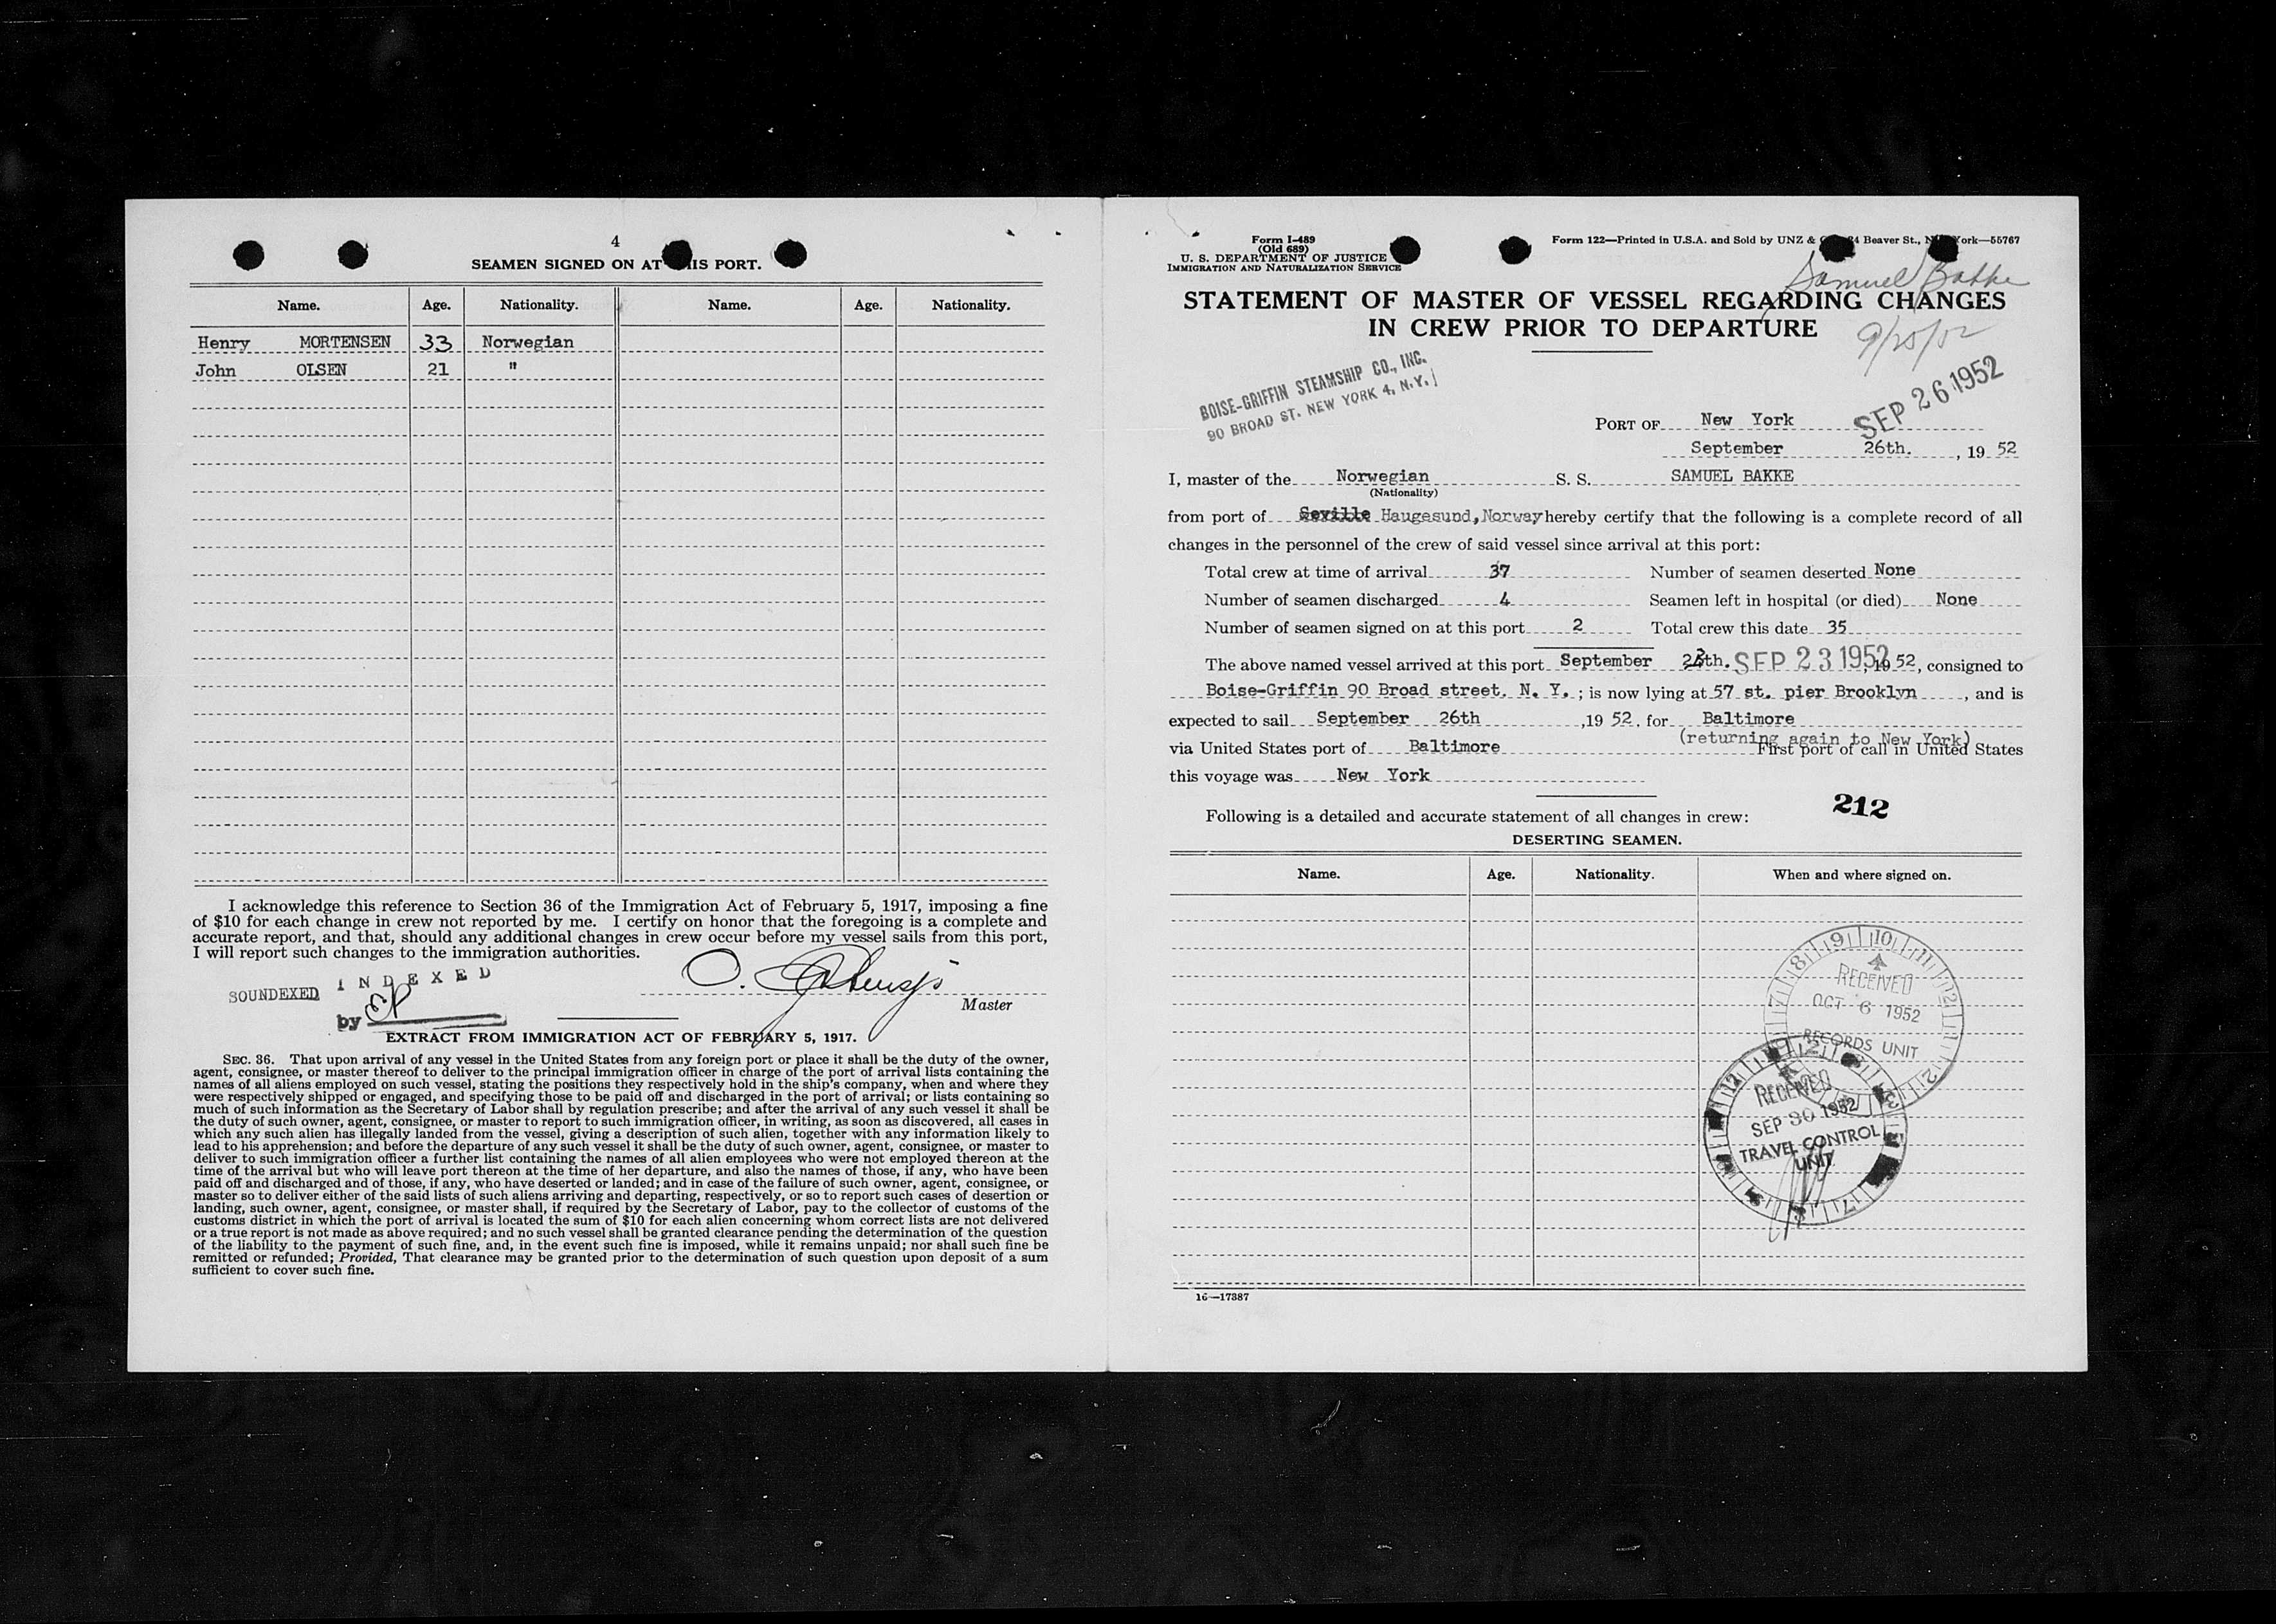 4
SEAMEN SIGNED ON AT THIS PORT.
Name. Age. Nationality. Name. Age. Nationality.
Henry MORTENSEN 33 Norwegian
John OLSEN 21 "
I acknowledge this reference to Section 36 of the Immigration Act of February 5, 1917, imposing a fine
of $10 for each change in crew not reported by me. I certify on honor that the foregoing is a complete and
accurate report, and that, should any additional changes in crew occur before my vessel sails from this port,
I will report such changes to the immigration authorities.
SOUNDEXED
INDEXED
by
O.
Master
EXTRACT FROM IMMIGRATION ACT OF FEBRUARY 5, 1917.
SEC. 36. That upon arrival of any vessel in the United States from any foreign port or place it shall be the duty of the owner,
agent, consignee, or master thereof to deliver to the principal immigration officer in charge of the port of arrival lists containing the
names of all aliens employed on such vessel, stating the positions they respectively hold in the ship's company, when and where they
were respectively shipped or engaged, and specifying those to be paid off and discharged in the port of arrival; or lists containing so
much of such information as the Secretary of Labor shall by regulation prescribe; and after the arrival of any such vessel it shall be
the duty of such owner, agent, consignee, or master to report to such immigration officer, in writing, as soon as discovered, all cases in
which any such alien has illegally landed from the vessel, giving a description of such alien, together with any information likely to
lead to his apprehension; and before the departure of any such vessel it shall be the duty of such owner, agent, consignee, or master to
deliver to such immigration officer a further list containing the names of all alien employees who were not employed thereon at the
time of the arrival but who will leave port thereon at the time of her departure, and also the names of those, if any, who have been
paid off and discharged and of those, if any, who have deserted or landed; and in case of the failure of such owner, agent, consignee, or
master so to deliver either of the said lists of such aliens arriving and departing, respectively, or so to report such cases of desertion or
landing, such owner, agent, consignee, or master shall, if required by the Secretary of Labor, pay to the collector of customs of the
customs district in which the port of arrival is located the sum of $10 for each alien concerning whom correct lists are not delivered
or a true report is not made as above required; and no such vessel shall be granted clearance pending the determination of the question
of the liability to the payment of such fine, and, in the event such fine is imposed, while it remains unpaid; nor shall such fine be
remitted or refunded; Provided, That clearance may be granted prior to the determination of such question upon deposit of a sum
sufficient to cover such fine.
Form I-489
(Old 689)
U. S. DEPARTMENT OF JUSTICE
IMMIGRATION AND NATURALIZATION SERVICE
Form 122—Printed in U.S.A. and Sold by UNZ & Beaver St., York—55767
Samuel Bakke
STATEMENT OF MASTER OF VESSEL REGARDING CHANGES
IN CREW PRIOR TO DEPARTURE
BOISE-GRIFFIN STEAMSHIP CO., INC.
90 BROAD ST. NEW YORK 4, N.Y.
SEP 26 1952
PORT OF New York
September 26th. , 19 52
I, master of the Norwegian S. S. SAMUEL BAKKE
(Nationality)
from port of Seville Haugesund, Norway hereby certify that the following is a complete record of all
changes in the personnel of the crew of said vessel since arrival at this port:
Total crew at time of arrival 37 Number of seamen deserted None
Number of seamen discharged 4 Seamen left in hospital (or died) None
Number of seamen signed on at this port 2 Total crew this date 35
The above named vessel arrived at this port September 23th. SEP 23 1952, 19 52, consigned to
Boise-Griffin 90 Broad street. N. Y. ; is now lying at 57 st. pier Brooklyn , and is
expected to sail September 26th ,19 52. for Baltimore
(returning again to New York)
via United States port of Baltimore First port of call in United States
this voyage was New York
212
Following is a detailed and accurate statement of all changes in crew:
DESERTING SEAMEN.
Name. Age. Nationality. When and where signed on.
RECEIVED
OCT 6 1952
RECORDS UNIT
RECEIVED
SEP 30 1952
TRAVEL CONTROL
UNIT
16—17387